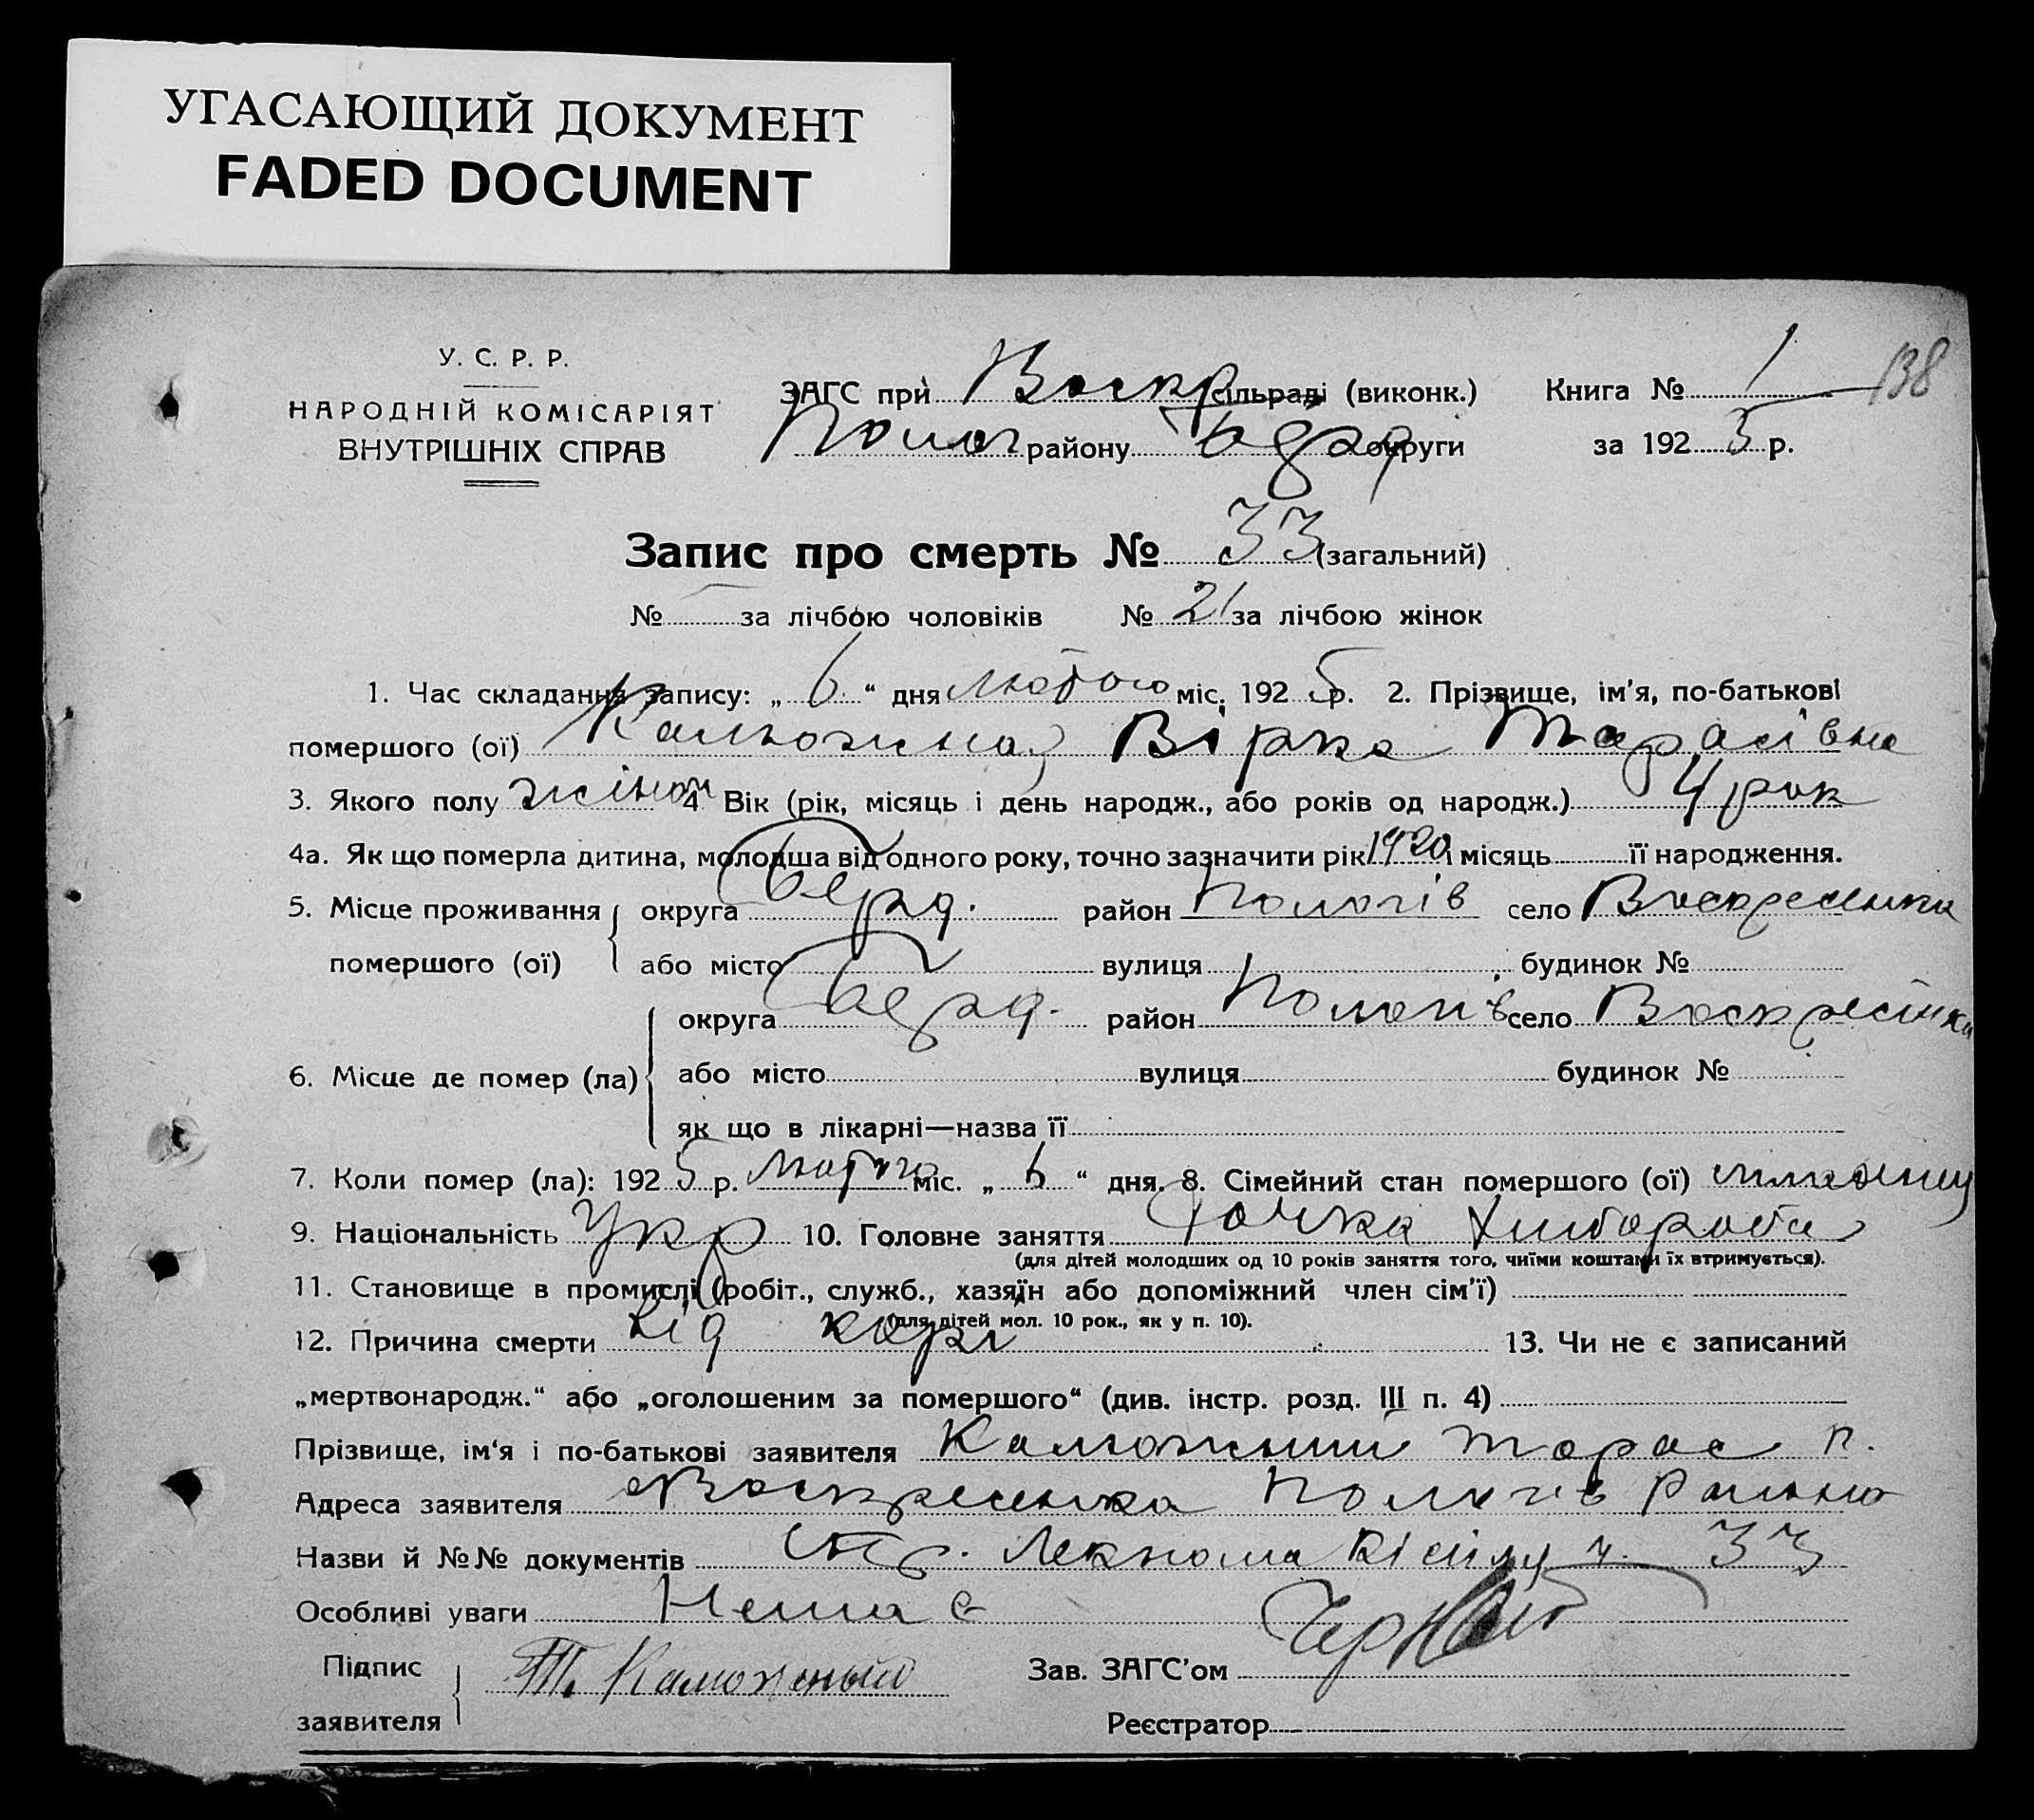 УГАСАЮЩИЙ ДОКУМЕНТ
FADED DOCUMENT
У. С. Р. Р.
НАРОДНІЙ КОМІСАРІЯТ
ВНУТРІШНІХ СПРАВ
ЗАГС при Воскр сільраді (виконк.)
Полог району Бердр округи
Книга № 1
138
за 1925 р.
Запис про смерть № 33 (загальний)
№ — за лічбою чоловіків № 21 за лічбою жінок
1. Час складання запису: „ 6 “ дня Лютого міс. 1925 р. 2. Прізвище, ім'я, по-батькові
помершого (ої) Калюжна Вірка Тарасівна
3. Якого полу жіноч 4 Вік (рік, місяць і день народж., або років од народж.) 4 рок
4а. Як що померла дитина, молодша від одного року, точно зазначити рік 1920 і місяць її народження.
5. Місце проживання помершого (ої) округа Берд. район Пологів село Воскресенка
або місто вулиця будинок №
6. Місце де помер (ла) округа Берд. район Пологів село Воскресінка
або місто вулиця будинок №
як що в лікарні—назва її
7. Коли помер (ла): 1925 р. Лютого міс. „ 6 “ дня. 8. Сімейний стан помершого (ої)
9. Національність Укр 10. Головне заняття Дочка Хлібороба
(для дітей молодших од 10 років заняття того, чиїми коштами їх втримується).
11. Становище в промислі (робіт., служб., хазяїн або допоміжний член сім'ї)
(для дітей мол. 10 рок., як у п. 10).
12. Причина смерти Від корі 13. Чи не є записаний
„мертвонародж.“ або „оголошеним за помершого“ (див. інстр. розд. III п. 4)
Прізвище, ім'я і по-батькові заявителя Калюжний Тарас П.
Адреса заявителя Воскресенка Пологів Району
Назви й №№ документів Лекпома 33
Особливі уваги Немає
Підпис заявителя Т. Калюжный
Зав. ЗАГС'ом
Реєстратор